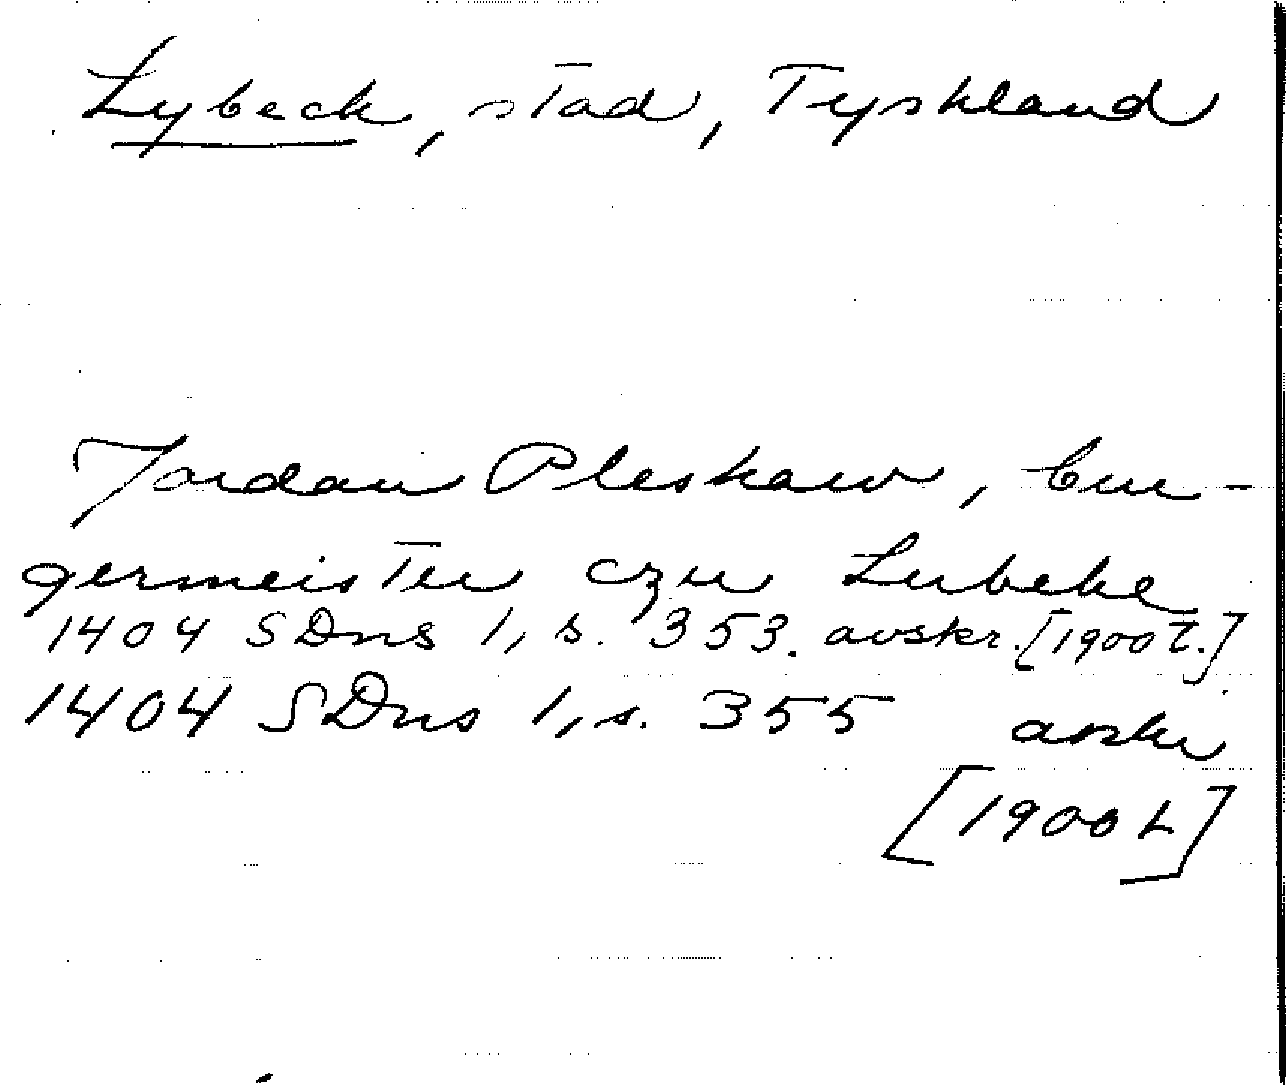 Lybeck, stad, Tyskland
Jordan Pleskaw, bur-
germeister czu Lubeke
1404 SDns 1, s. 353. avskr. [1900 t.]
1404 SDns 1, s. 355 avskr
[1900 t]